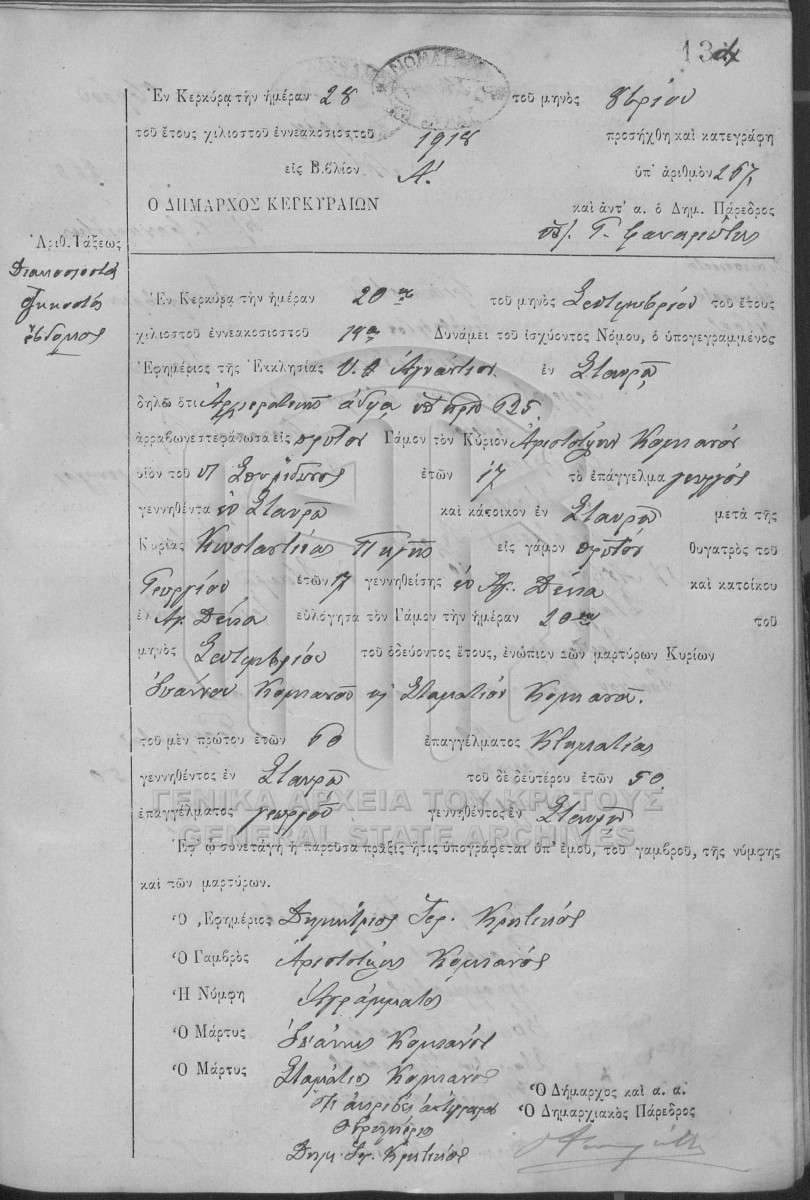 13
Ἐν Κερκύρᾳ τὴν ἡμέραν 28 τοῦ μηνὸς 8βρίου
τοῦ ἔτους χιλιοστοῦ ἐννεακοσιοστοῦ 1918 προσήχθη καὶ κατεγράφη
εἰς Βιβλίον Α΄. ὑπ' ἀριθμὸν 267
Ὁ ΔΗΜΑΡΧΟΣ ΚΕΡΚΥΡΑΙΩΝ καὶ ἀντ' α. ὁ Δημ. Πάρεδρος
Γ. Φαναριώτης
Ἀριθ. Τάξεως
Διακοσιοστὴ
ἑξηκοστὴ
ἑβδόμη
Ἐν Κερκύρᾳ τὴν ἡμέραν 20 τοῦ μηνὸς Σεπτεμβρίου τοῦ ἔτους
χιλιοστοῦ ἐννεακοσιοστοῦ Δυνάμει τοῦ ἰσχύοντος Νόμου, ὁ ὑπογεγραμμένος
Ἐφημέριος τῆς Ἐκκλησίας ἐν Σταυρῷ
δηλῶ ὅτι Ἀρχιερατικῇ ἀδείᾳ ὑπ' ἀριθ 625
ἀρραβωνεστεφάνωσα εἰς πρῶτον Γάμον τὸν Κύριον Ἀριστοτέλην Κομπανόν
υἱὸν τοῦ Σπυρίδωνος ἐτῶν 17 τὸ ἐπάγγελμα γεωργός
γεννηθέντα ἐν Σταυρῷ καὶ κάτοικον ἐν Σταυρῷ μετὰ τῆς
Κυρίας Κωσταντίνας εἰς γάμον πρῶτον θυγατρὸς τοῦ
Γεωργίου ἐτῶν 17 γεννηθείσης ἐν Ἁγ. Δέκα καὶ κατοίκου
ἐν Ἁγ. Δέκα εὐλόγησα τὸν Γάμον τὴν ἡμέραν 20 τοῦ
μηνὸς Σεπτεμβρίου τοῦ ὁδεύοντος ἔτους, ἐνώπιον τῶν μαρτύρων Κυρίων
Ἰωάννου Κομπανοῦ καὶ Σταματίου Κομπανοῦ.
τοῦ μὲν πρώτου ἐτῶν 60 ἐπαγγέλματος Κτηματίας
γεννηθέντος ἐν Σταυρῷ τοῦ δὲ δευτέρου ἐτῶν 50
ἐπαγγέλματος γεωργοῦ γεννηθέντος ἐν Σταυρῷ
ΓΕΝΙΚΑ ΑΡΧΕΙΑ ΤΟΥ ΚΡΑΤΟΥΣ
GENERAL STATE ARCHIVES
Ἐφ' ᾧ συνετάγη ἡ παροῦσα πρᾶξις ἥτις ὑπογράφεται ὑπ' ἐμοῦ, τοῦ γαμβροῦ, τῆς νύμφης
καὶ τῶν μαρτύρων.
Ὁ Ἐφημέριος Δημήτριος Ἱερ. Κρητικός
Ὁ Γαμβρὸς Ἀριστοτέλης Κομπανός
Ἡ Νύμφη Ἀγράμματος
Ὁ Μάρτυς Ἰωάννης Κομπανός
Ὁ Μάρτυς Σταμάτιος Κομπανός
Ὁ Δήμαρχος καὶ α. α.
Ὁ Δημαρχιακὸς Πάρεδρος
Ὁ Ἐφημέριος
Δημ. Ἱερ. Κρητικός